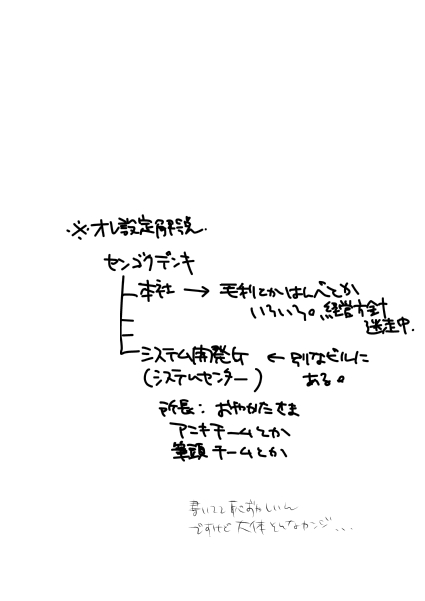 ※オレ設定解説.
センゴクデンキ
本社 → 毛利とかはんべとか
いろいろ。経営方針
迷走中.
システム開発庁 ← 別なビルに
(システムセンター) ある。
所長: おやかたさま
アニキチームとか
筆頭チームとか
書いてて恥ずかしいん
ですけど大体そんなカンジ...